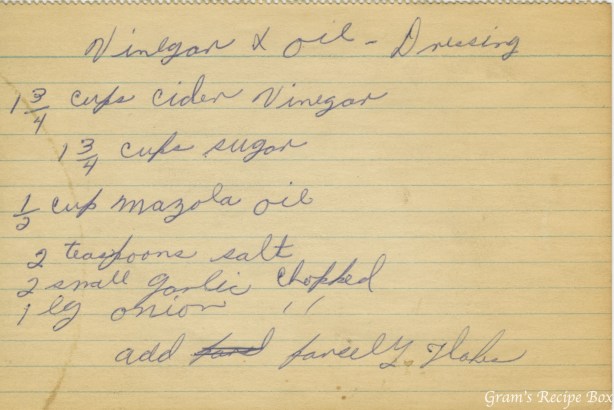 Vinegar & oil - Dressing
1 3/4 cups cider vinegar
1 3/4 cups sugar
1/2 cup mazola oil
2 teaspoons salt
2 small garlic chopped
1 lg onion "
add parsely flakes
Gram's Recipe Box